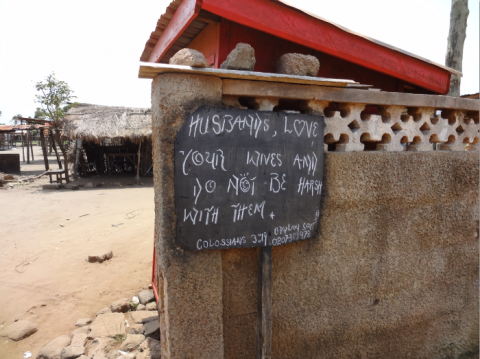 HUSBANDS, LOVE
YOUR WIVES AND
DO NOT BE HARSH
WITH THEM.
COLOSSIANS 3:19